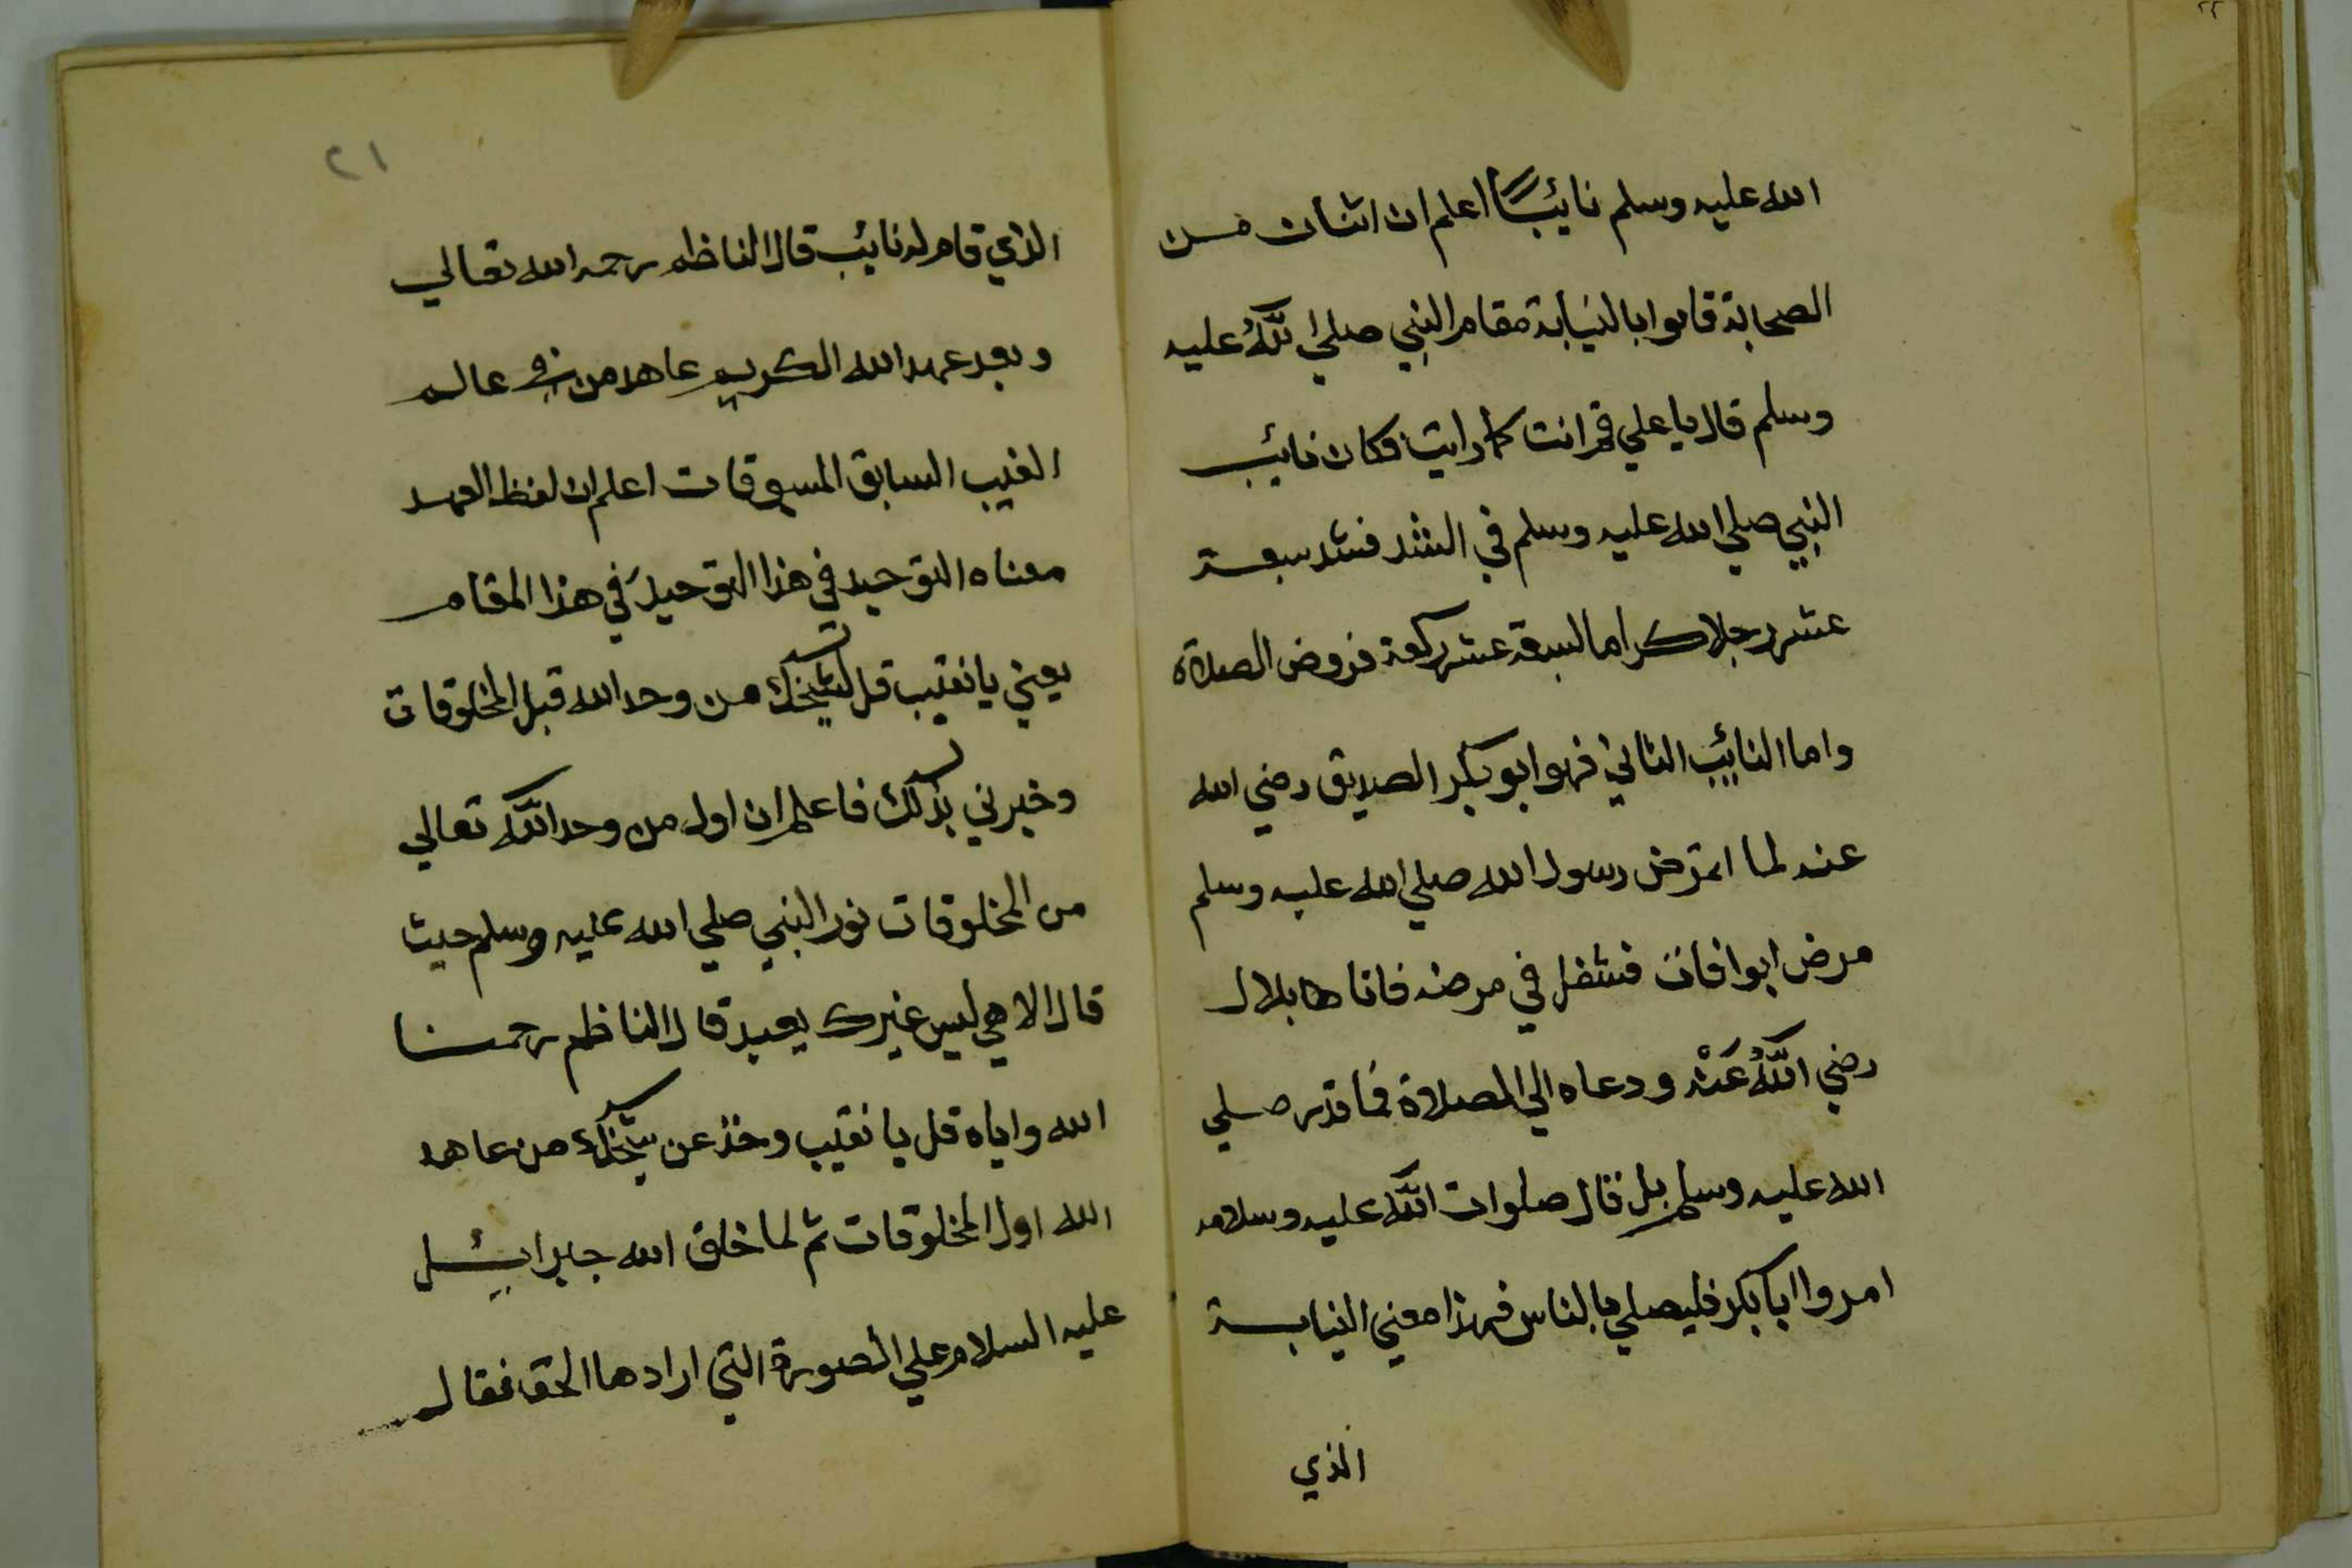 الله عليه وسلم نائبًا اعلم ان اثنان من
الصحابة قاموا بالنيابة مقام النبي صلي اللّٰهُ عليه
وسلم قال يا علي قم انت كما رايت فكان نائب
النبي صلي الله عليه وسلم في الشد فشد سبعة
عشر رجلا كراما لسبعة عشر ركعة فروض الصلاة
واما النائب الثاني فهو ابو بكر الصديق رضي الله
عنه لما امترض رسول الله صلي الله عليه وسلم
مرض ابوا فان فشغل في مرضه فاتا ها بلال
رضي اللّٰهُ عَنْه ودعاه الي الصلاة فما قدر صلي
الله عليه وسلم بل قال صلوات اللّٰه عليه وسلامه
امروا ابا بكر فليصلي بالناس فهذا معني النيابة
الذي
٢١
الذي قام له نائب قال الناظم رحمه الله تعالي
وبعد عهد الله الكريم عاهد من في عالم
الغيب السابق المسبوقات اعلم ان لفظ العهد
معناه التوحيد في هذا التوحيد في هذا المقام
يعني يا نقيب قل لشيخك من وحد الله قبل المخلوقات
وخبرني بذلك فاعلم ان اول من وحد اللّٰه تعالي
من المخلوقات نور النبي صلي الله عليه وسلم حيث
قال الاهي ليس غيرك يعبد قال الناظم رحمنا
الله واياه قل يا نقيب وخذ عن شيخك من عاهد
الله اول المخلوقات ثم لما خلق الله جبرائيل
عليه السلام علي الصورة التي ارادها الحق فقال